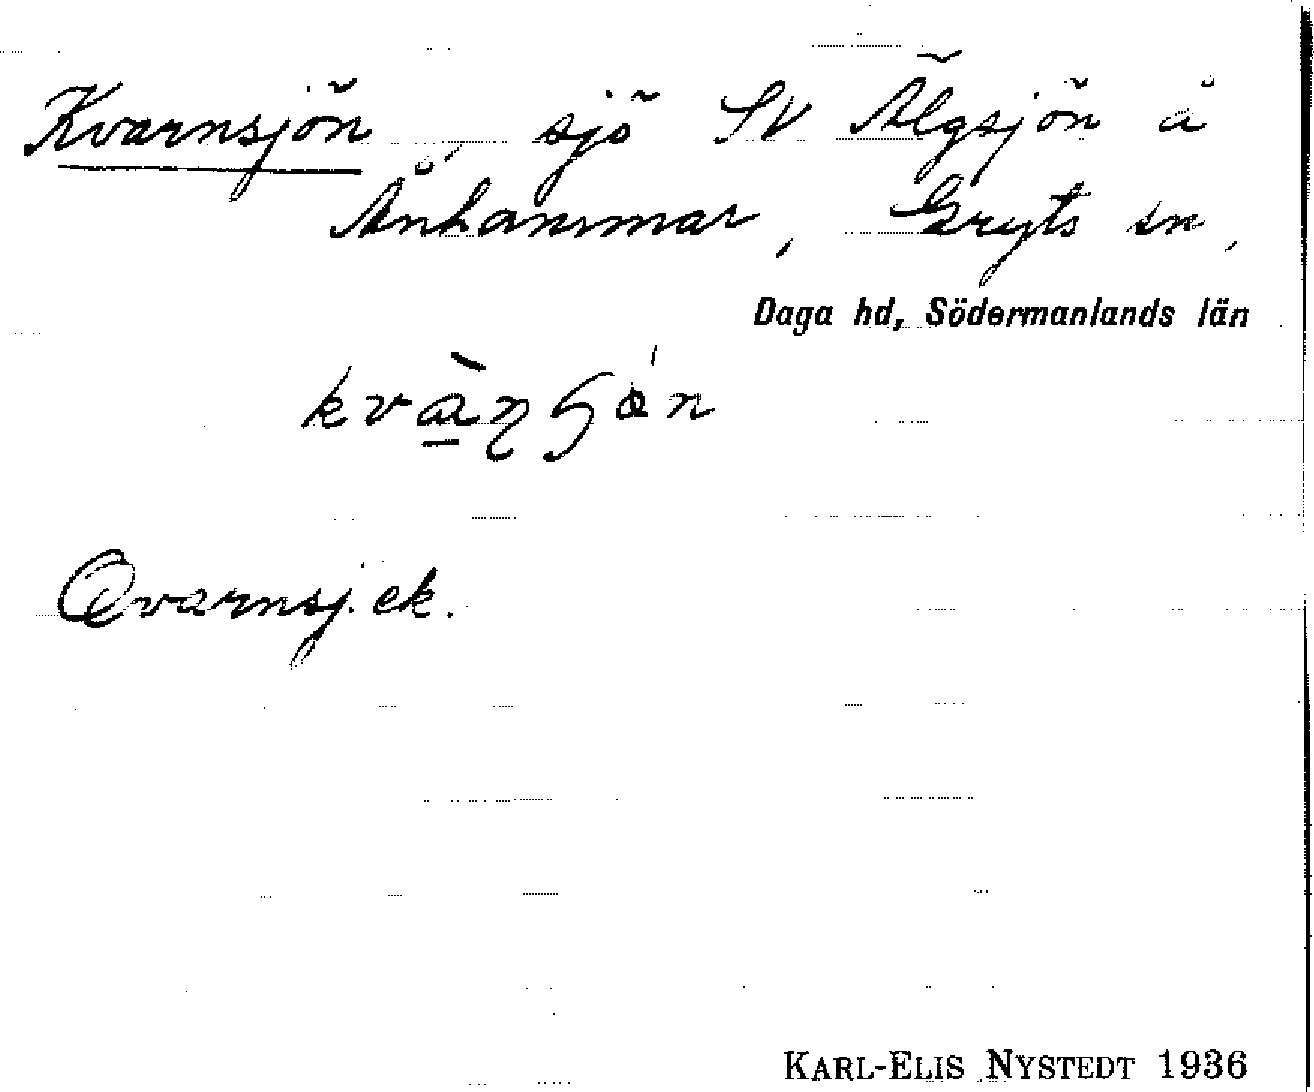 Kvarnsjön, sjö SV Älgsjön å
Ånhammar, Gryts sn,
Daga hd, Södermanlands län
Qvarnsj. ek.
KARL-ELIS NYSTEDT 1936